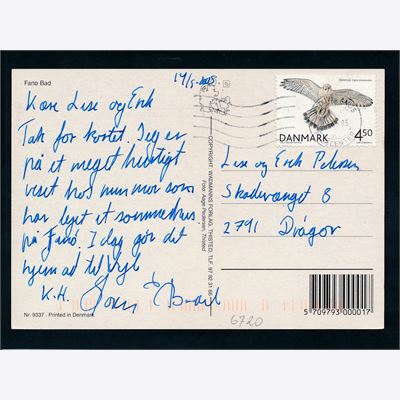 Fanø Bad
19/5-2005
Kære Lise og Erik
Tak for kortet. Jeg er
på et meget hurtigt
visit hos min mor som
har lejet et sommerhus
på Fanø. I dag går det
hjem ad til
K.H.
Nr. 9337 . Printed in Denmark
COPYRIGHT: WAXMANNS FORLAG, THISTED, TLF. 97 92 31 66
Foto: Aage Pedersen, Thisted
DANMARK
4.50
Lise og Erik Petersen
Skadevænget 8
2791 Dragør
5 709793 000017
6720